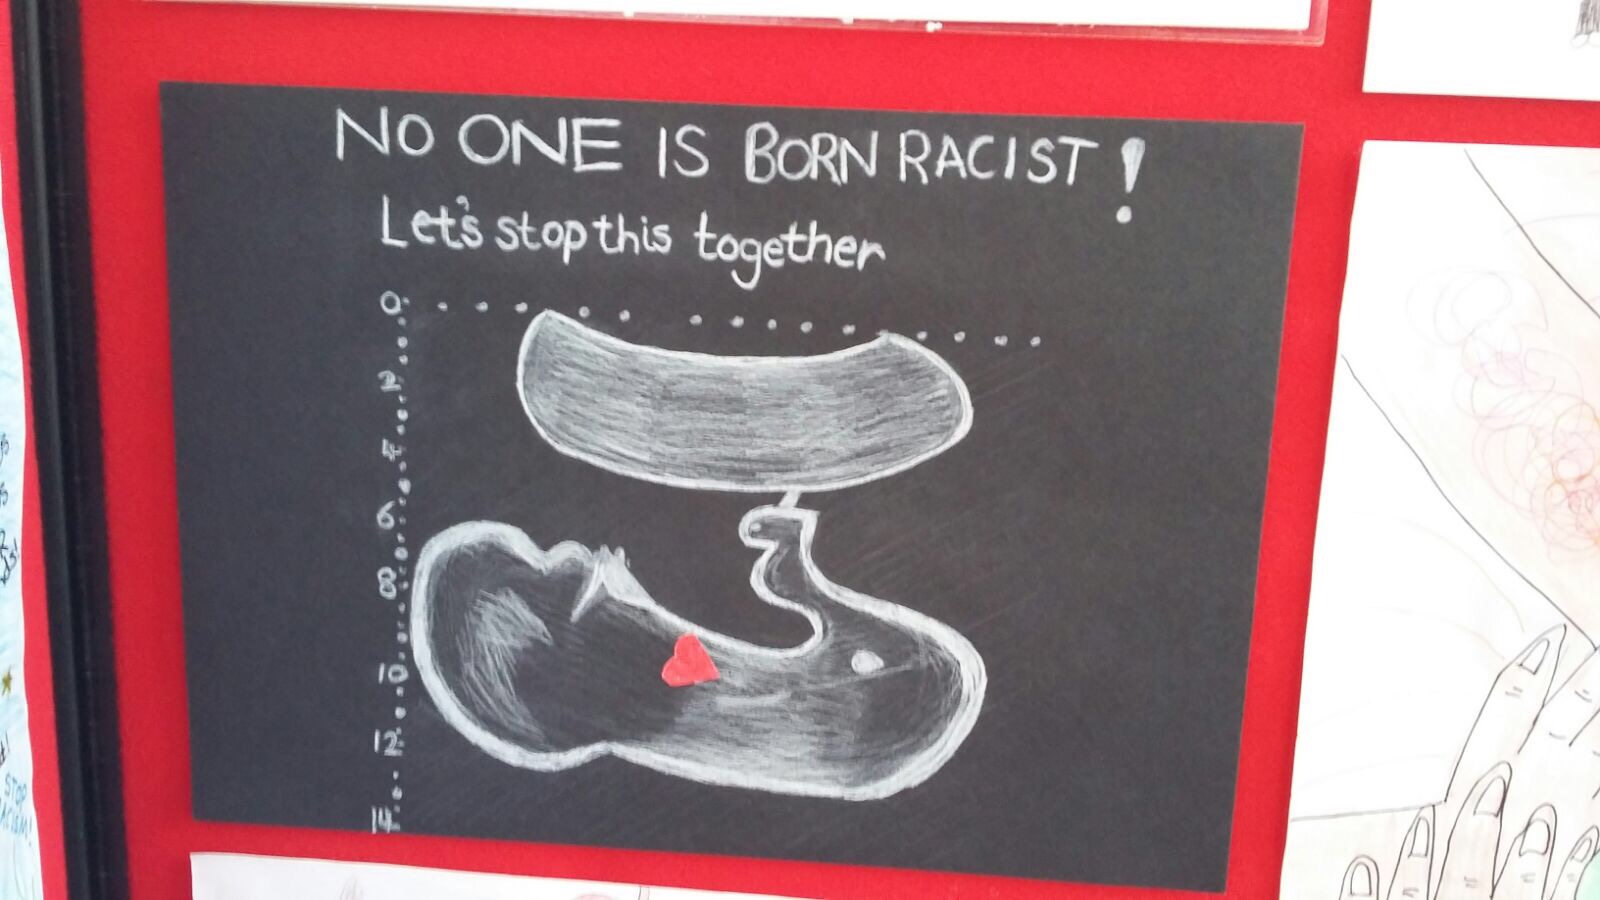 NO ONE IS BORN RACIST!
Let's stop this together
0
2
4
6
8
10
12
14
STOP
RACISM!